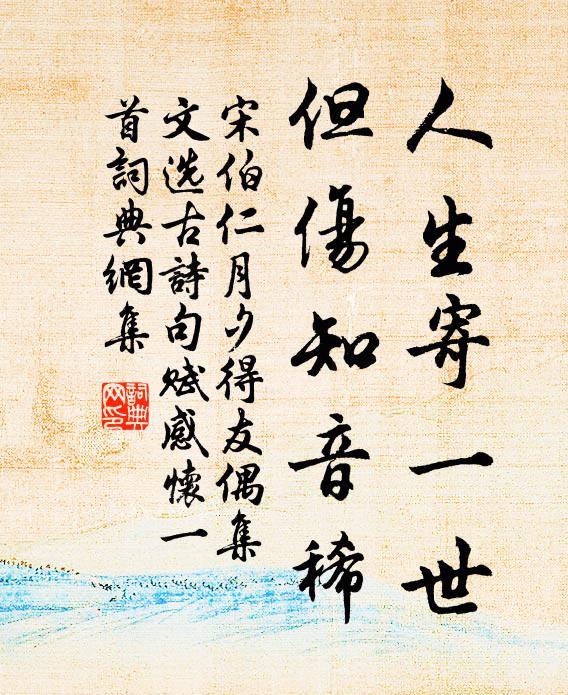 人生寄一世
但傷知音稀
宋伯仁月夕得友偶集
文选古詩句赋感懷一
首詞典網集
詞典网印